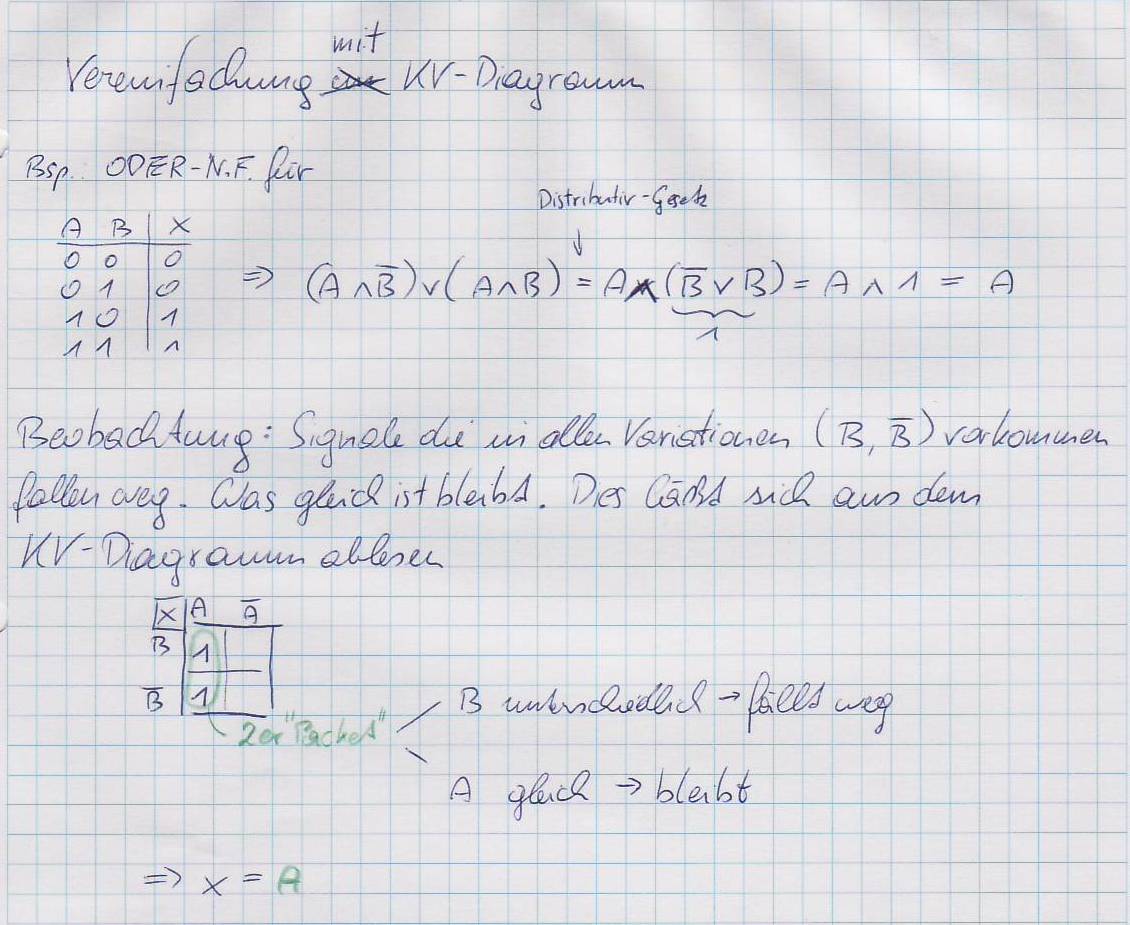 Vereinfachung mit KV-Diagramm
Bsp. ODER-N.F. für
Distributiv-Gesetz
A B | X
0 0 | 0
0 1 | 0
1 0 | 1
1 1 | 1
⇒ (A ∧ B̅) ∨ (A ∧ B) = A ∧ (B̅ ∨ B) = A ∧ 1 = A
1
Beobachtung: Signale die in allen Variationen (B, B̅) vorkommen
fallen weg. Was gleich ist bleibt. Dies läßt sich aus dem
KV-Diagramm ablesen
X A A̅
B 1
B̅ 1
2er "Packet"
B unterschiedlich → fällt weg
A gleich → bleibt
⇒ X = A